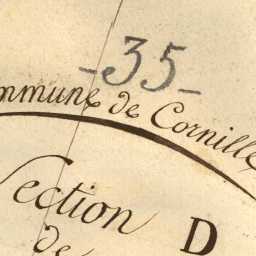 -35-
ommune de Cornille
Section D
de